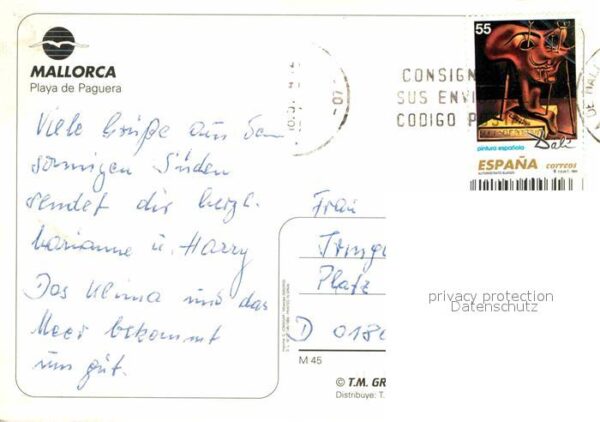 MALLORCA
Playa de Paguera
Viele Grüße aus dem
sonnigen Süden
sendet dir herzl.
Marianne u. Harry
Das Klima und das
Meer bekommt
uns gut.
55
CONSIGN
SUS ENVI
CODIGO P
07
pintura española
Dalí
ESPAÑA correos
Frau
Irmg
Platz
D 0180
M 45
© T.M. GR
Distribuye: T.
privacy protection
Datenschutz